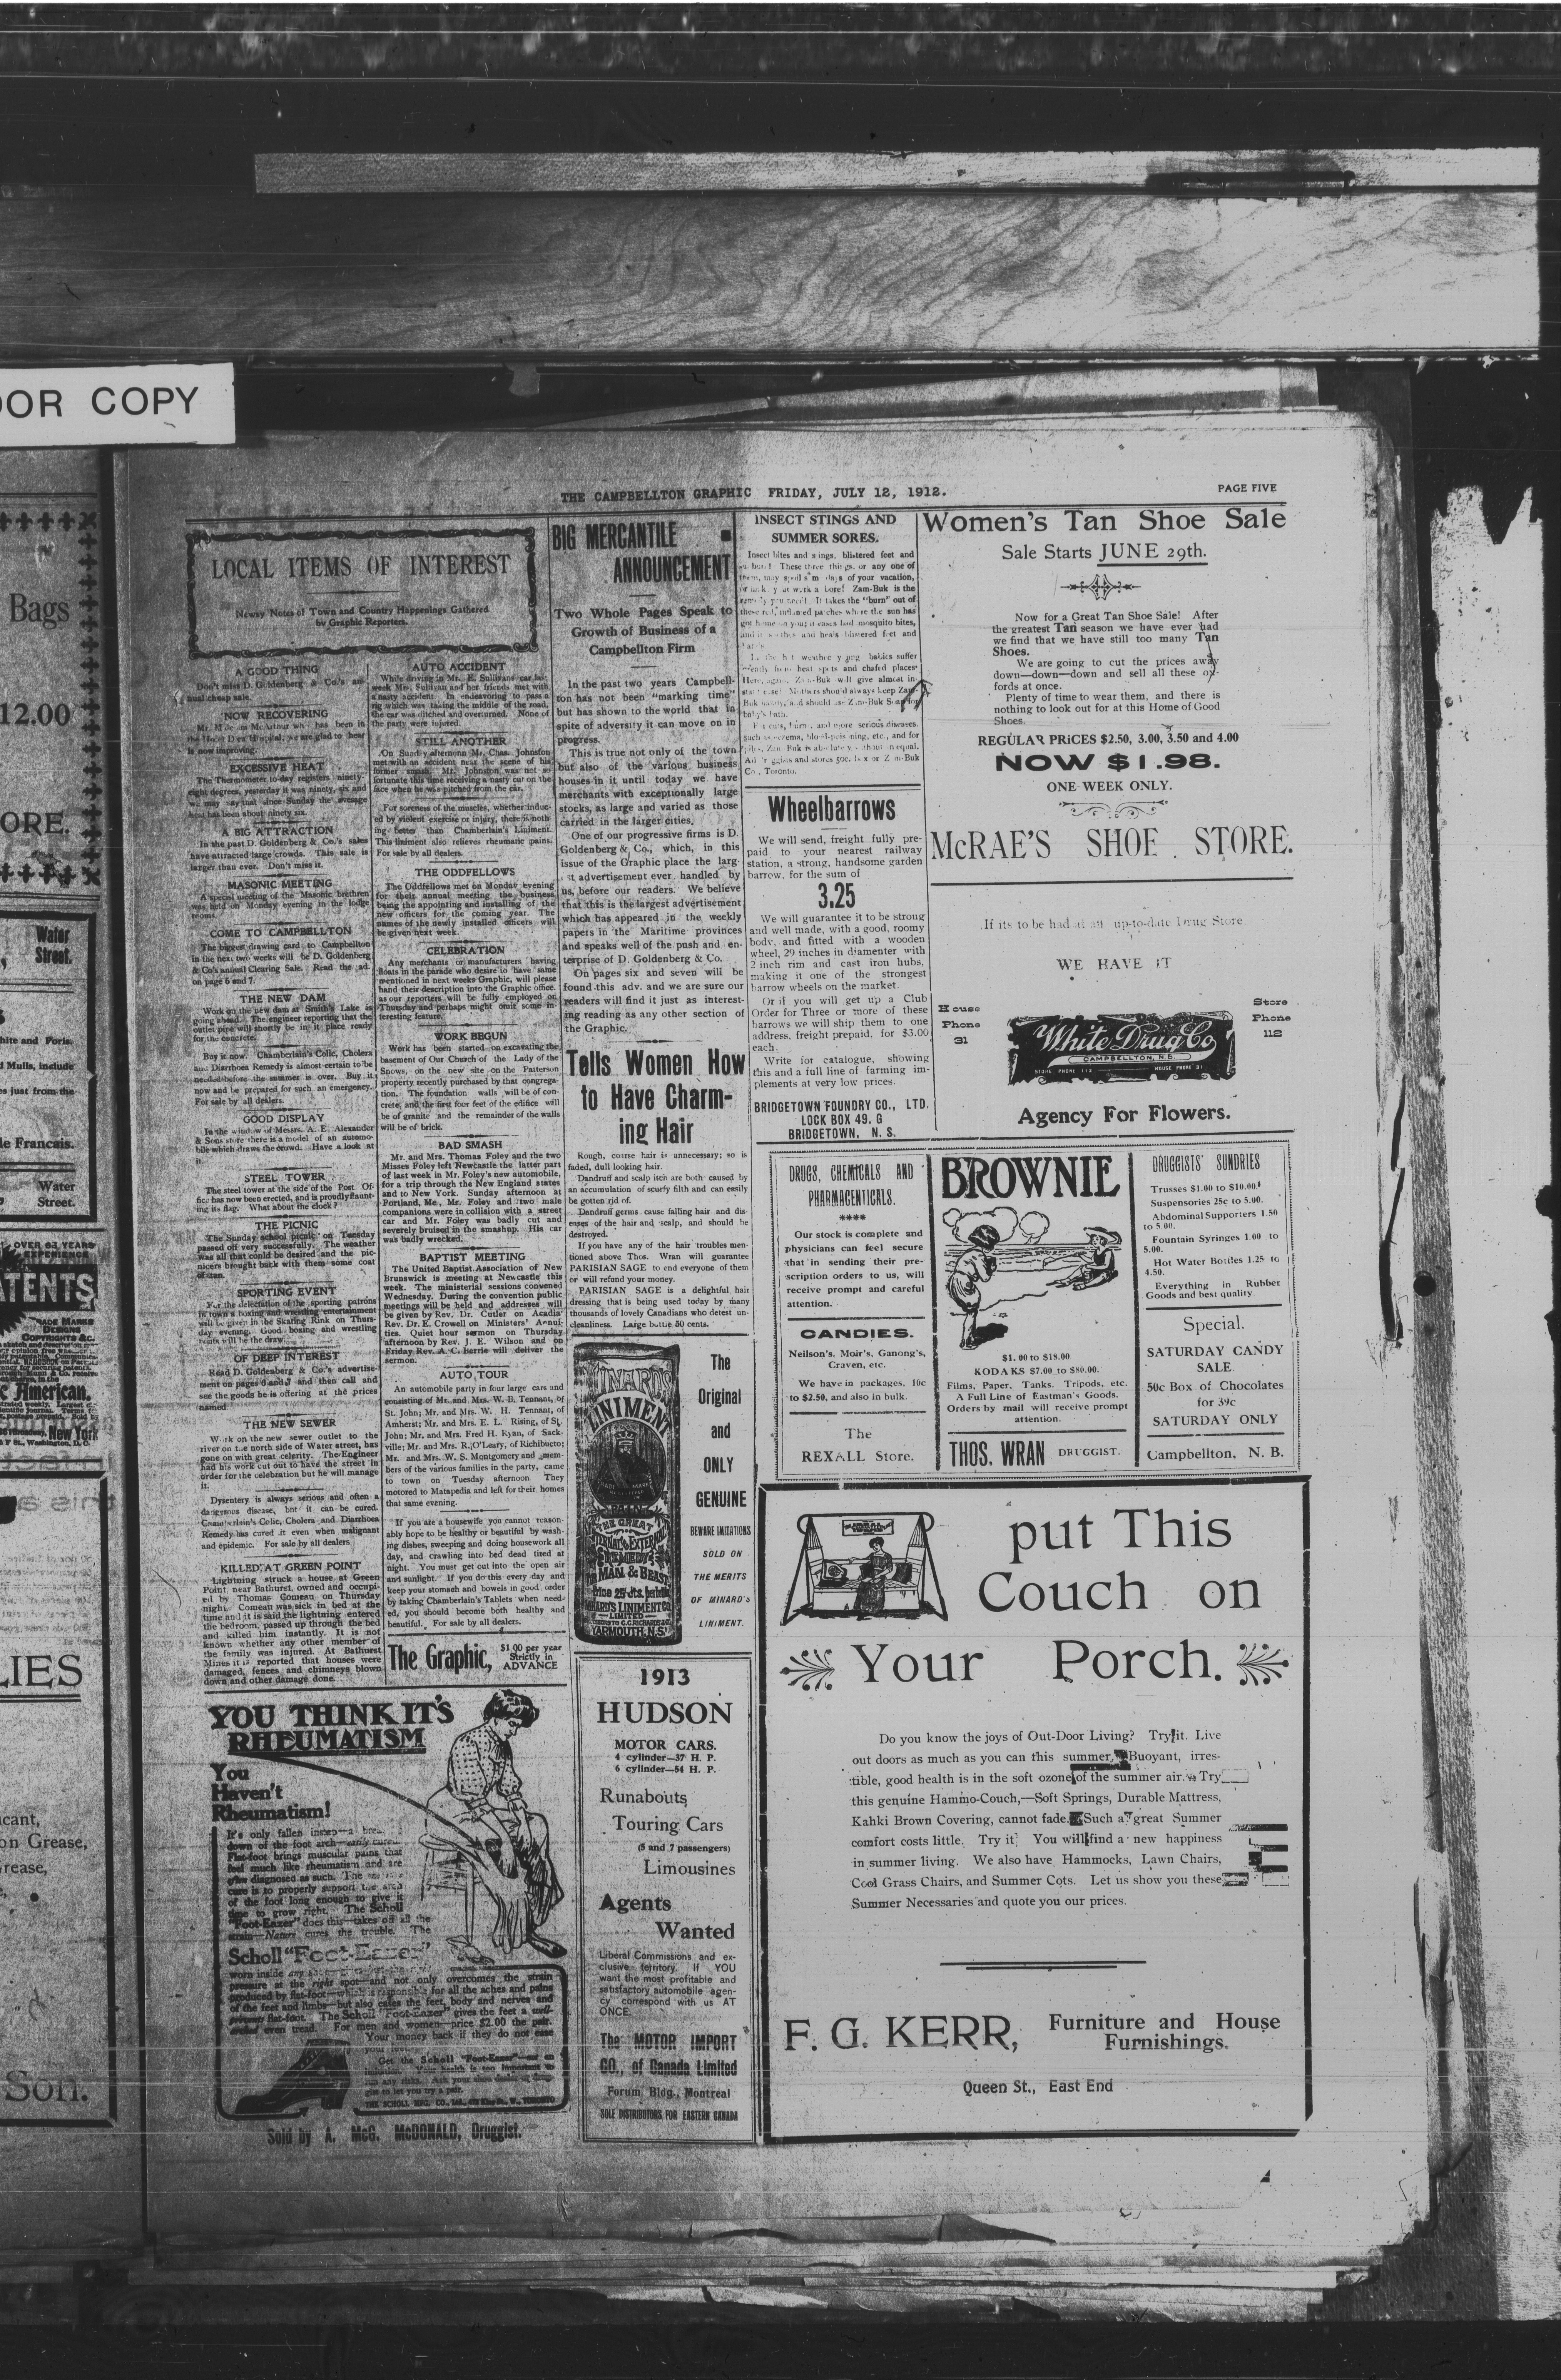 OOR COPY
Bags
12.00
ORE.
Water
Street.
hite and Foris.
l Mulls, include
es just from the
le Francais.
Water
Street.
OVER 63 YEARS'
EXPERIENCE
ATENTS
TRADE MARKS
DESIGNS
COPYRIGHTS &C.
c American.
New York
LIES
icant,
on Grease,
rease,
Son.
THE CAMPBELLTON GRAPHIC FRIDAY, JULY 12, 1912.
PAGE FIVE
LOCAL ITEMS OF INTEREST
Newsy Notes of Town and Country Happenings Gathered
by Graphic Reporters.
A GOOD THING
Don't miss D. Goldenberg & Co.'s an-
nual cheap sale.
NOW RECOVERING
Mr. McArthur who has been in
the Hotel Dieu Hospital, we are glad to hear
is now improving.
EXCESSIVE HEAT
The Thermometer to-day registers ninety-
eight degrees, yesterday it was ninety, six and
we may say that since Sunday the average
heat has been about ninety six.
A BIG ATTRACTION
In the past D. Goldenberg & Co.'s sales
have attracted large crowds. This sale is
larger than ever. Don't miss it.
MASONIC MEETING
A special meeting of the Masonic brethren
was held on Monday evening in the lodge
rooms.
COME TO CAMPBELLTON
The biggest drawing card to Campbellton
in the next two weeks will be D. Goldenberg
& Co's annual Clearing Sale. Read the ad.
on page 6 and 7.
THE NEW DAM
Work on the new dam at Smith's Lake is
going ahead. The engineer reporting that the
outlet pipe will shortly be in it place ready
for the concrete.
Buy it now. Chamberlain's Colic, Cholera
and Diarrhoea Remedy is almost certain to be
needed before the summer is over. Buy it
now and be prepared for such an emergency.
For sale by all dealers.
GOOD DISPLAY
In the window of Messrs. A. E. Alexander
& Sons store there is a model of an automo-
bile which draws the crowd. Have a look at
it.
STEEL TOWER
The steel tower at the side of the Post Of-
fice has now been erected, and is proudly flaunt-
ing its flag. What about the clock?
THE PICNIC
The Sunday school picnic on Tuesday
passed off very successfully. The weather
was all that could be desired and the pic-
nicers brought back with them some coat
of tan.
SPORTING EVENT
For the delectation of the sporting patrons
in town's boxing and wrestling entertainment
will be given in the Skating Rink on Thurs-
day evening. Good boxing and wrestling
bouts will be the draw.
OF DEEP INTEREST
Read D. Goldenberg & Co.'s advertise-
ment on pages 6 and 7 and then call and
see the goods he is offering at the prices
named
THE NEW SEWER
Work on the new sewer outlet to the
river on the north side of Water street, has
gone on with great celerity. The Engineer
had his work cut out to have the street in
order for the celebration but he will manage
it.
Dysentery is always serious and often a
dangerous disease, but it can be cured.
Chamberlain's Colic, Cholera and Diarrhoea
Remedy has cured it even when malignant
and epidemic. For sale by all dealers
KILLED AT GREEN POINT
Lightning struck a house at Green
Point near Bathurst, owned and occupi-
ed by Thomas Comeau on Thursday
night. Comeau was sick in bed at the
time and it is said the lightning entered
the bedroom, passed up through the bed
and killed him instantly. It is not
known whether any other member of
the family was injured. At Bathurst
Mines it is reported that houses were
damaged, fences and chimneys blown
down and other damage done.
AUTO ACCIDENT
While driving in Mr. E. Sullivans car last
week Mrs. Sullivan and her friends met with
a nasty accident. In endeavoring to pass a
rig which was taking the middle of the road,
the car was ditched and overturned. None of
the party were injured.
STILL ANOTHER
On Sunday afternoon Mr. Chas. Johnston
met with an accident near the scene of his
former smash. Mr. Johnston was not so
fortunate this time receiving a nasty cut on the
face when he was pitched from the car.
For soreness of the muscles, whether induc-
ed by violent exercise or injury, there is noth-
ing better than Chamberlain's Liniment.
This liniment also relieves rheumatic pains.
For sale by all dealers.
THE ODDFELLOWS
The Oddfellows met on Monday evening
for their annual meeting the business
being the appointing and installing of the
new officers for the coming year. The
names of the newly installed officers will
be given next week.
CELEBRATION
Any merchants or manufacturers having
floats in the parade who desire to have same
mentioned in next weeks Graphic, will please
hand their description into the Graphic office.
as our reporters will be fully employed on
Thursday and perhaps might omit some in-
teresting feature.
WORK BEGUN
Work has been started on excavating the
basement of Our Church of the Lady of the
Snows, on the new site on the Patterson
property recently purchased by that congrega-
tion. The foundation walls will be of con-
crete, and the first four feet of the edifice will
be of granite and the remainder of the walls
will be of brick.
BAD SMASH
Mr. and Mrs. Thomas Foley and the two
Misses Foley left Newcastle the latter part
of last week in Mr. Foley's new automobile,
for a trip through the New England states
and to New York. Sunday afternoon at
Portland, Me., Mr. Foley and two male
companions were in collision with a street
car and Mr. Foley was badly cut and
severely bruised in the smashup. His car
was badly wrecked.
BAPTIST MEETING
The United Baptist Association of New
Brunswick is meeting at Newcastle this
week. The ministerial sessions convened
Wednesday. During the convention public
meetings will be held and addresses will
be given by Rev. Dr. Cutler on Acadia
Rev. Dr. E. Crowell on Ministers' Annui-
ties. Quiet hour sermon on Thursday
afternoon by Rev. J. E. Wilson and on
Friday Rev. A. C. Berrie will deliver the
sermon.
AUTO TOUR
An automobile party in four large cars and
consisting of Mr. and Mrs. W. B. Tennant, of
St. John; Mr. and Mrs. W. H. Tennant, of
Amherst; Mr. and Mrs. E. L. Rising, of St.
John; Mr. and Mrs. Fred H. Ryan, of Sack-
ville; Mr. and Mrs. R. O'Leary, of Richibucto;
Mr. and Mrs. W. S. Montgomery and mem-
bers of the various families in the party, came
to town on Tuesday afternoon They
motored to Matapedia and left for their homes
that same evening.
If you are a housewife you cannot reason-
ably hope to be healthy or beautiful by wash-
ing dishes, sweeping and doing housework all
day, and crawling into bed dead tired at
night. You must get out into the open air
and sunlight. If you do this every day and
keep your stomach and bowels in good order
by taking Chamberlain's Tablets when need-
ed, you should become both healthy and
beautiful. For sale by all dealers.
The Graphic, $1.00 per year
Strictly in
ADVANCE
YOU THINK IT'S
RHEUMATISM
You
Haven't
Rheumatism!
It's only fallen instep—a breaking
down of the foot arch—easily cured.
Flat-foot brings muscular pains that
feel much like rheumatism and are
often diagnosed as such. The
cure is to properly support the arch
of the foot long enough to give it
time to grow right. The Scholl
"Foot-Eazer" does this—takes off all the
strain—Nature cures the trouble. The
Scholl "Foot-Eazer"
worn inside any
pressure at the right spot—and not only overcomes the strain
produced by flat-foot—which is responsible for all the aches and pains
of the feet and limbs—but also eases the feet, body and nerves and
prevents flat-foot. The Scholl "Foot-Eazer" gives the feet a well-
even tread. For men and women—price $2.00 the pair.
Your money back if they do not ease
your feet.
Get the Scholl "Foot-Eazer"—not an
imitation. Your health is too important to
run any risks. Ask your shoe dealer or drug-
gist to let you try a pair.
THE SCHOLL MFG. CO., Ltd., King St., W., TORONTO
Sold by A. McG. McDONALD, Druggist.
BIG MERCANTILE
ANNOUNCEMENT
Two Whole Pages Speak to
Growth of Business of a
Campbellton Firm
In the past two years Campbell-
ton has not been "marking time"
but has shown to the world that in
spite of adversity it can move on in
progress.
This is true not only of the town
but also of the various business
houses in it until today we have
merchants with exceptionally large
stocks, as large and varied as those
carried in the larger cities.
One of our progressive firms is D.
Goldenberg & Co., which, in this
issue of the Graphic place the larg-
est advertisement ever handled by
us, before our readers. We believe
that this is the largest advertisement
which has appeared in the weekly
papers in the Maritime provinces
and speaks well of the push and en-
terprise of D. Goldenberg & Co.
On pages six and seven will be
found this adv. and we are sure our
readers will find it just as interest-
ing reading as any other section of
the Graphic.
Tells Women How
to Have Charm-
ing Hair
Rough, course hair is unnecessary; so is
faded, dull looking hair.
Dandruff and scalp itch are both caused by
an accumulation of scurfy filth and can easily
be gotten rid of.
Dandruff germs cause falling hair and dis-
eases of the hair and scalp, and should be
destroyed.
If you have any of the hair troubles men-
tioned above Thos. Wran will guarantee
PARISIAN SAGE to end everyone of them
or will refund your money.
PARISIAN SAGE is a delightful hair
dressing that is being used today by many
thousands of lovely Canadians who detest un-
cleanliness. Large bottle 50 cents.
MINARD'S
LINIMENT
THE GREAT
INTERNAL & EXTERNAL
REMEDY
FOR MAN & BEAST
Price 25 cts. per bottle
MINARD'S LINIMENT CO.
LIMITED
YARMOUTH, N.S.
The
Original
and
ONLY
GENUINE
BEWARE IMITATIONS
SOLD ON
THE MERITS
OF MINARD'S
LINIMENT.
1913
HUDSON
MOTOR CARS.
4 cylinder—37 H. P.
6 cylinder—54 H. P.
Runabouts
Touring Cars
(5 and 7 passengers)
Limousines
Agents
Wanted
Liberal Commissions and ex-
clusive territory. If YOU
want the most profitable and
satisfactory automobile agen-
cy correspond with us AT
ONCE.
The MOTOR IMPORT
CO., of Canada Limited
Forum Bldg., Montreal
SOLE DISTRIBUTORS FOR EASTERN CANADA
INSECT STINGS AND
SUMMER SORES.
Insect bites and stings, blistered feet and
sunburn! These three things, or any one of
them, may spoil some days of your vacation,
or make your work a bore! Zam-Buk is the
remedy you need! It takes the "burn" out of
these red, inflamed patches where the sun has
got home on you; it eases bad mosquito bites,
and it soothes and heals blistered feet and
hands.
In the hot weather young babies suffer
greatly from heat spots and chafed places.
Here, again, Zam-Buk will give almost in-
stant ease! Mothers should always keep Zam-
Buk handy, and should use Zam-Buk Soap for
baby's bath.
For cuts, burns, and more serious diseases,
such as eczema, blood-poisoning, etc., and for
piles, Zam-Buk is absolutely without an equal.
All druggists and stores 50c. box or Zam-Buk
Co., Toronto.
Wheelbarrows
We will send, freight fully pre-
paid to your nearest railway
station, a strong, handsome garden
barrow, for the sum of
3.25
We will guarantee it to be strong
and well made, with a good, roomy
body, and fitted with a wooden
wheel, 29 inches in diamenter with
2 inch rim and cast iron hubs,
making it one of the strongest
barrow wheels on the market.
Or if you will get up a Club
Order for Three or more of these
barrows we will ship them to one
address, freight prepaid, for $3.00
each.
Write for catalogue, showing
this and a full line of farming im-
plements at very low prices.
BRIDGETOWN FOUNDRY CO., LTD.
LOCK BOX 49. G
BRIDGETOWN, N. S.
Women's Tan Shoe Sale
Sale Starts JUNE 29th.
Now for a Great Tan Shoe Sale! After
the greatest Tan season we have ever had
we find that we have still too many Tan
Shoes.
We are going to cut the prices away
down—down—down and sell all these ox-
fords at once.
Plenty of time to wear them, and there is
nothing to look out for at this Home of Good
Shoes.
REGULAR PRICES $2.50, 3.00, 3.50 and 4.00
NOW $1.98.
ONE WEEK ONLY.
McRAE'S SHOE STORE.
If its to be had at an up-to-date Drug Store
WE HAVE IT
House
Phone
31
Store
Phone
112
White Drug Co
CAMPBELLTON, N.B.
STORE PHONE 112 HOUSE PHONE 31
Agency For Flowers.
DRUGS, CHEMICALS AND
PHARMACENTICALS.
****
Our stock is complete and
physicians can feel secure
that in sending their pre-
scription orders to us, will
receive prompt and careful
attention.
CANDIES.
Neilson's, Moir's, Ganong's,
Craven, etc.
We have in packages, 10c
to $2.50, and also in bulk.
The
REXALL Store.
BROWNIE
$1.00 to $18.00
KODAKS $7.00 to $80.00.
Films, Paper, Tanks, Tripods, etc.
A Full Line of Eastman's Goods.
Orders by mail will receive prompt
attention.
THOS. WRAN DRUGGIST.
DRUGGISTS' SUNDRIES
Trusses $1.00 to $10.00.
Suspensories 25c to 5.00.
Abdominal Supporters 1.50
to 5.00.
Fountain Syringes 1.00 to
5.00.
Hot Water Bottles 1.25 to
4.50.
Everything in Rubber
Goods and best quality
Special.
SATURDAY CANDY
SALE
50c Box of Chocolates
for 39c
SATURDAY ONLY
Campbellton, N. B.
put This
Couch on
Your Porch.
Do you know the joys of Out-Door Living? Try it. Live
out doors as much as you can this summer. Buoyant, irres-
tible, good health is in the soft ozone of the summer air. Try
this genuine Hammo-Couch,—Soft Springs, Durable Mattress,
Kahki Brown Covering, cannot fade. Such a great Summer
comfort costs little. Try it. You will find a new happiness
in summer living. We also have Hammocks, Lawn Chairs,
Cool Grass Chairs, and Summer Cots. Let us show you these
Summer Necessaries and quote you our prices.
F. G. KERR, Furniture and House
Furnishings.
Queen St., East End